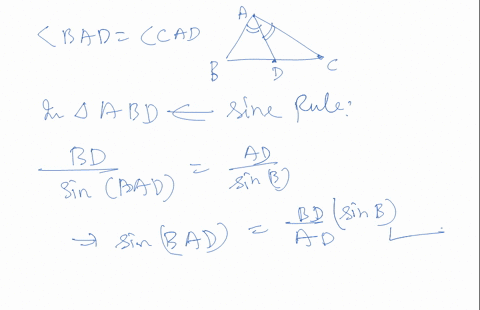 <BAD = <CAD
A
B
D
C
In Δ ABD ← sine Rule:
BD/sin (BAD) = AD/sin(B)
→ sin(BAD) = BD/AD (sin B)